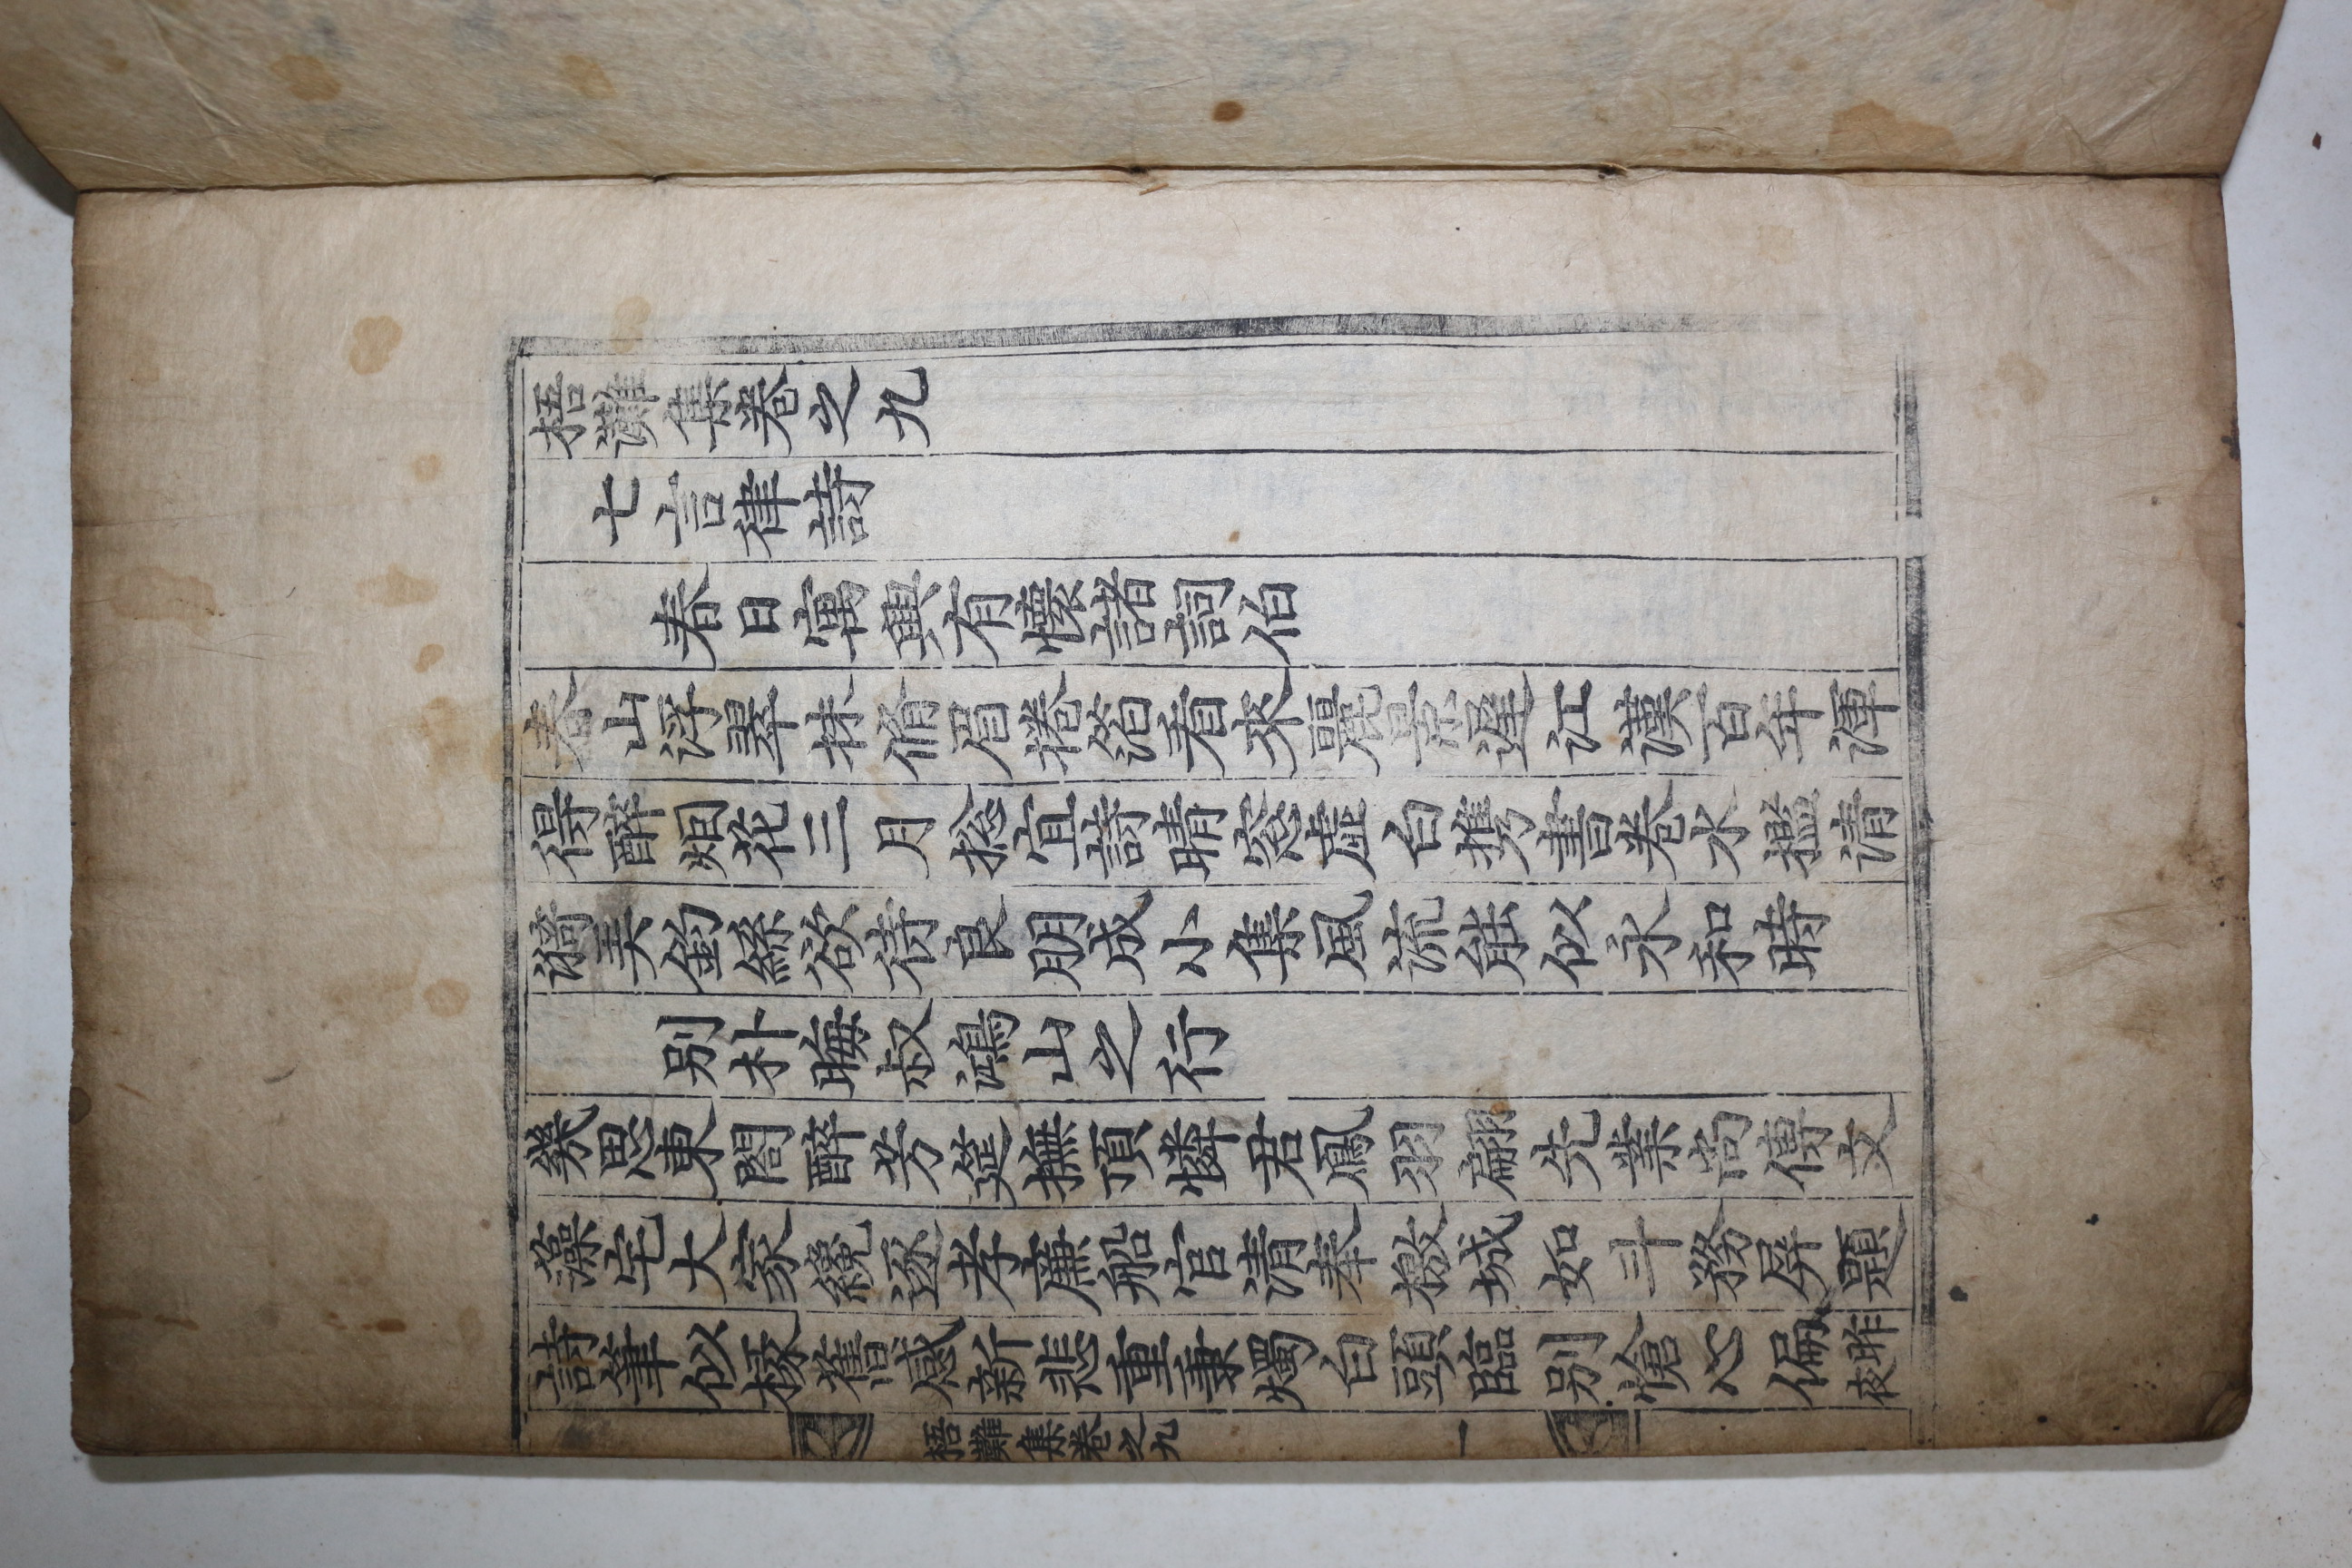 梧灘集卷之九
七言律詩
春日寓興有懷諸詞伯
春山浮翠抹脩眉捲箔看來麗景遲江漢百年渾
得醉烟花三月捴宜詩晴窓虛白携書卷水檻清
漪弄釣絲欲待良朋成小集風流能似永和時
別朴晦叔鴻山之行
幾思東閤醉芳筵撫頂憐君鳳羽翩先業尚傳文
藻宅大家纔逐孝廉船官清奉檄城如斗務屏題
詩筆似椽舊感新悲重秉燭白頭臨別愴心偏昨夜
梧灘集卷之九 一